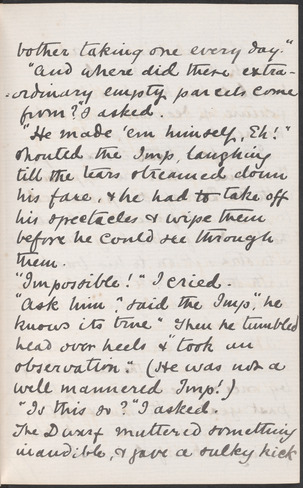 bother taking one every day."
"And where did these extra-
-ordinary empty parcels come
from?" I asked.
"He made 'em himself, Eh!"
shouted the Imp, laughing
till the tears streamed down
his face, & he had to take off
his spectacles & wipe them
before he could see through
them.
"Impossible!" I cried.
"Ask him", said the Imp, "he
knows its true" Then he tumbled
head over heels & "took an
observation". (He was not a
well mannered Imp!)
"Is this so?" I asked.
The Dwarf muttered something
inaudible, & gave a sulky kick